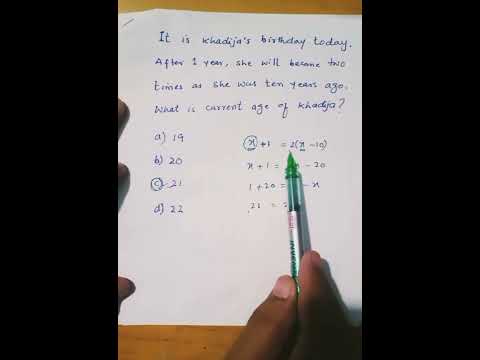 It is Khadija's birthday today.
After 1 year, she will become two
times as she was ten years ago.
What is current age of Khadija?
a) 19
b) 20
c) 21
d) 22
x +1 = 2(x -10)
x + 1 = - 20
1 + 20 = - x
21 =